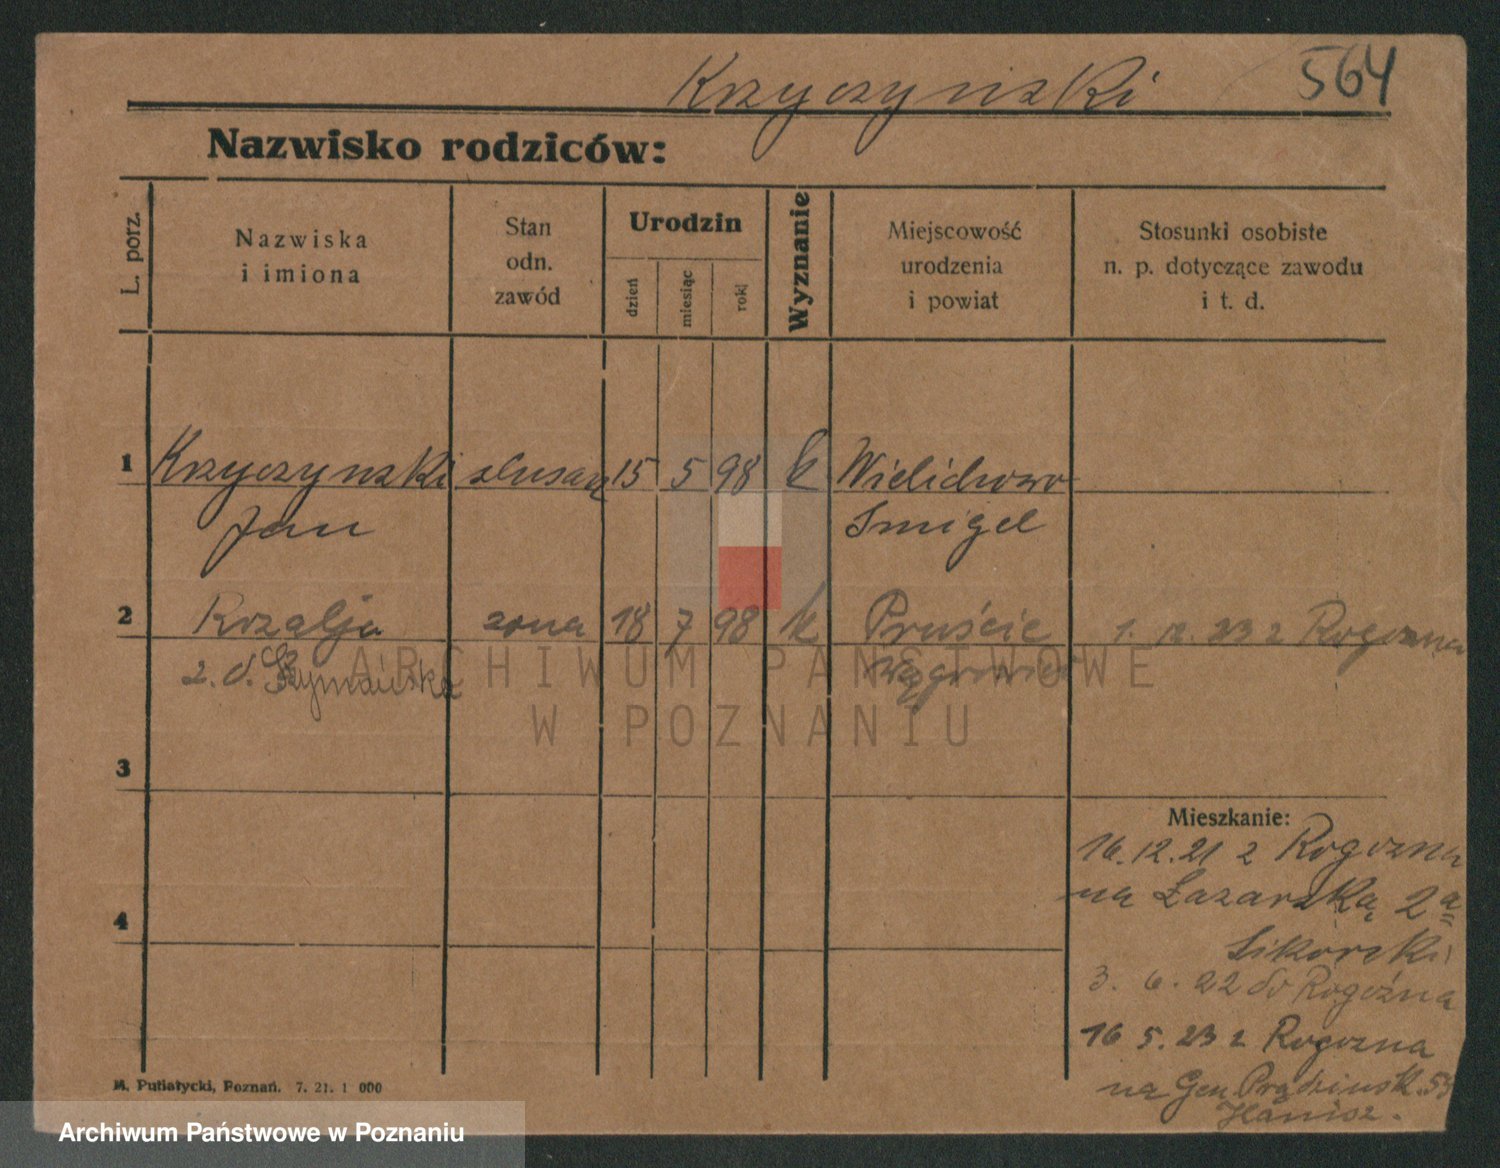 Krzyczynski 564
Nazwisko rodziców:
L. porz.
Nazwiska
i imiona
Stan
odn.
zawód
Urodzin
dzień
miesiąc
rok
Wyznanie
Miejscowość
urodzenia
i powiat
Stosunki osobiste
n. p. dotyczące zawodu
i t. d.
1 Krzyczynski slusarz 15 5 98 k Wielichowo
Jan Smigel
2 Rozalja zona 18 7 98 k Pruście 1. 12. 23 z Rogozna
z. d. Szymańska Wągrowiec
ARCHIWUM PAŃSTWOWE
W POZNANIU
3
Mieszkanie:
16.12.21 z Rogozna
na Łazarską 2a
Sikorski
4
3. 6. 22 do Rogoźna
16 5. 23 z Rogozna
na Gen. Prądzińsk. 53
M. Putiatycki, Poznań. 7. 21. 1 000
Archiwum Państwowe w Poznaniu